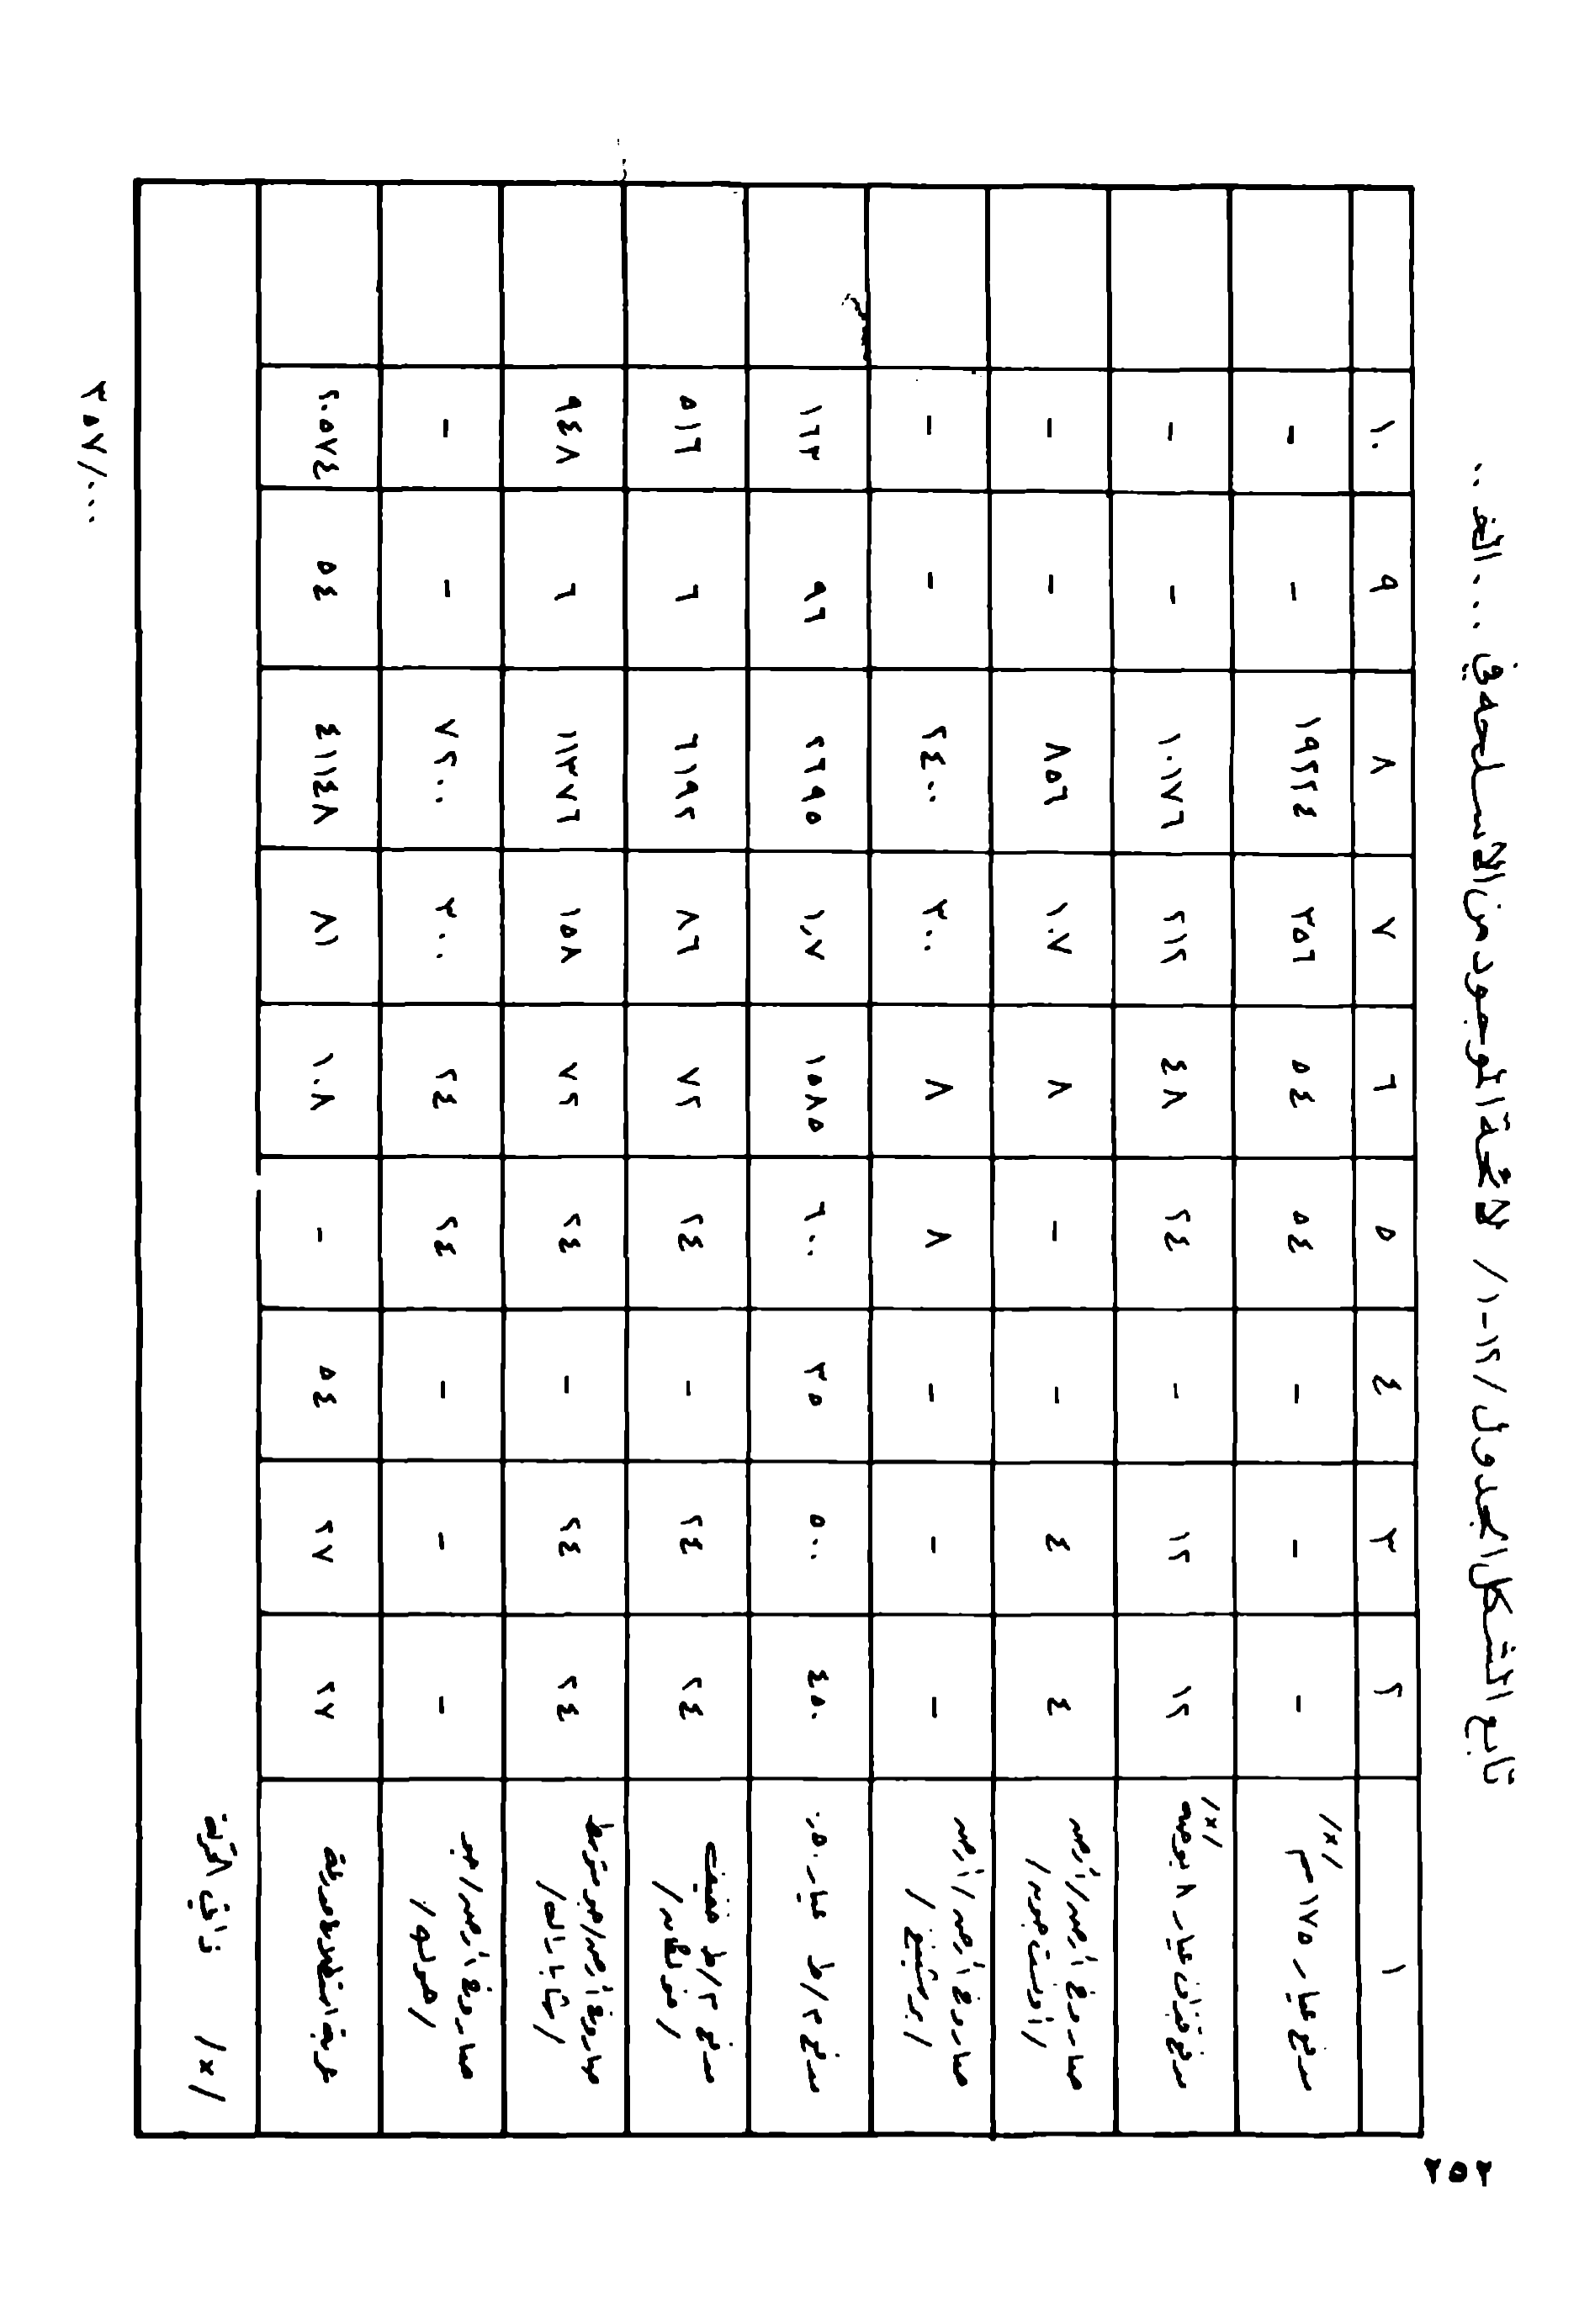 ٢٥٢
تابع الشكل الجدول /١٢-١/ لائحة الموجود من الأسلحة في ... الف ..
١ ٢ ٣ ٤ ٥ ٦ ٧ ٨ ٩ ١٠
مدفع عيار ١٧٥ مم /×/ - - - ٥٤ ٥٤ ٣٥٦ ١٩٢٢٤ - -
مدفع قذاف عيار ٨ بوصه /×/ ١٢ ١٢ - ٢٤ ٤٨ ٢١٢ ١٠١٧٦ - -
صاروخ أرض/أرض /اونست جون/ ٤ ٤ - - ٨ ١٠٧ ٨٥٦ - -
صاروخ أرض/أرض /برشينغ/ - - - ٨ ٨ ٣٠٠ ٢٤٠٠ - -
مدفع م/ط عيار ٥٠, ٤٥٠ ٥٠٠ ٣٥ ٦٠٠ ١٥٨٥ ١,٧ ٢٦٩٥ ٩٦ ١٦٣
مدفع م/ط خفيف ٢٤ ٢٤ - ٢٤ ٧٢ ٨٦ ٦١٩٢ ٦ ٥١٦
صاروخ أرض/جو متوسط /شاباراله/ ٢٤ ٢٤ - ٢٤ ٧٢ ١٥٨ ١١٣٧٦ ٦ ٩٤٨
صاروخ أرض/جو /هوك/ - - - ٢٤ ٢٤ ٣٠٠ ٧٢٠٠ - -
عربة استطلاع مدرعة ٢٧ ٢٧ ٥٤ - ١٠٨ ٨١ ٤١١٤٨ ٥٤ ٢٠٥٧٤
/×/ ذاتي الحركة
٣٥٧/...